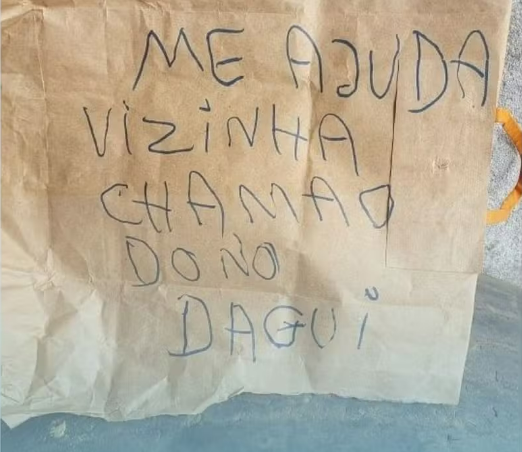 ME AJUDA
ViZiNHA
CHAMAO
DONO
DAGUi